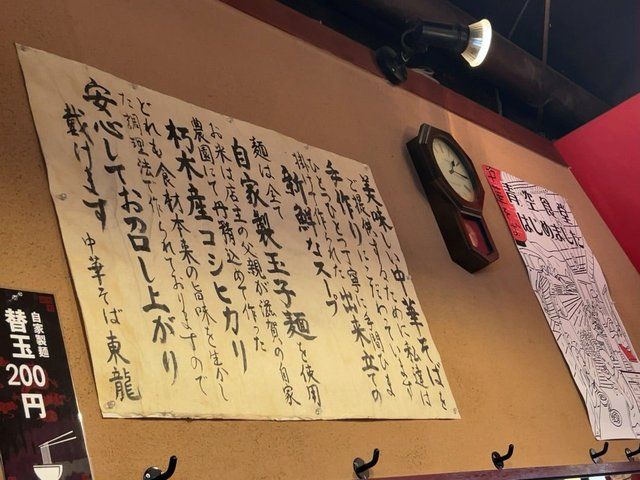 美味しい中華そばを
提供するために私達は
手作りにこだわっています
ひとつひとつ丁寧に手間ひま
かけて作られた出来立ての
新鮮なスープ
麺は全て
自家製玉子麺を使用
お米は店主の父親が滋賀の自家
農園にて丹精込めて作った
朽木産コシヒカリ
どれも食材本来の旨味を生かし
た調理法で作られておりますので
安心してお召し上がり
戴けます 中華そば 東龍
自家製麺
替玉
200円
青空食堂
はじめました